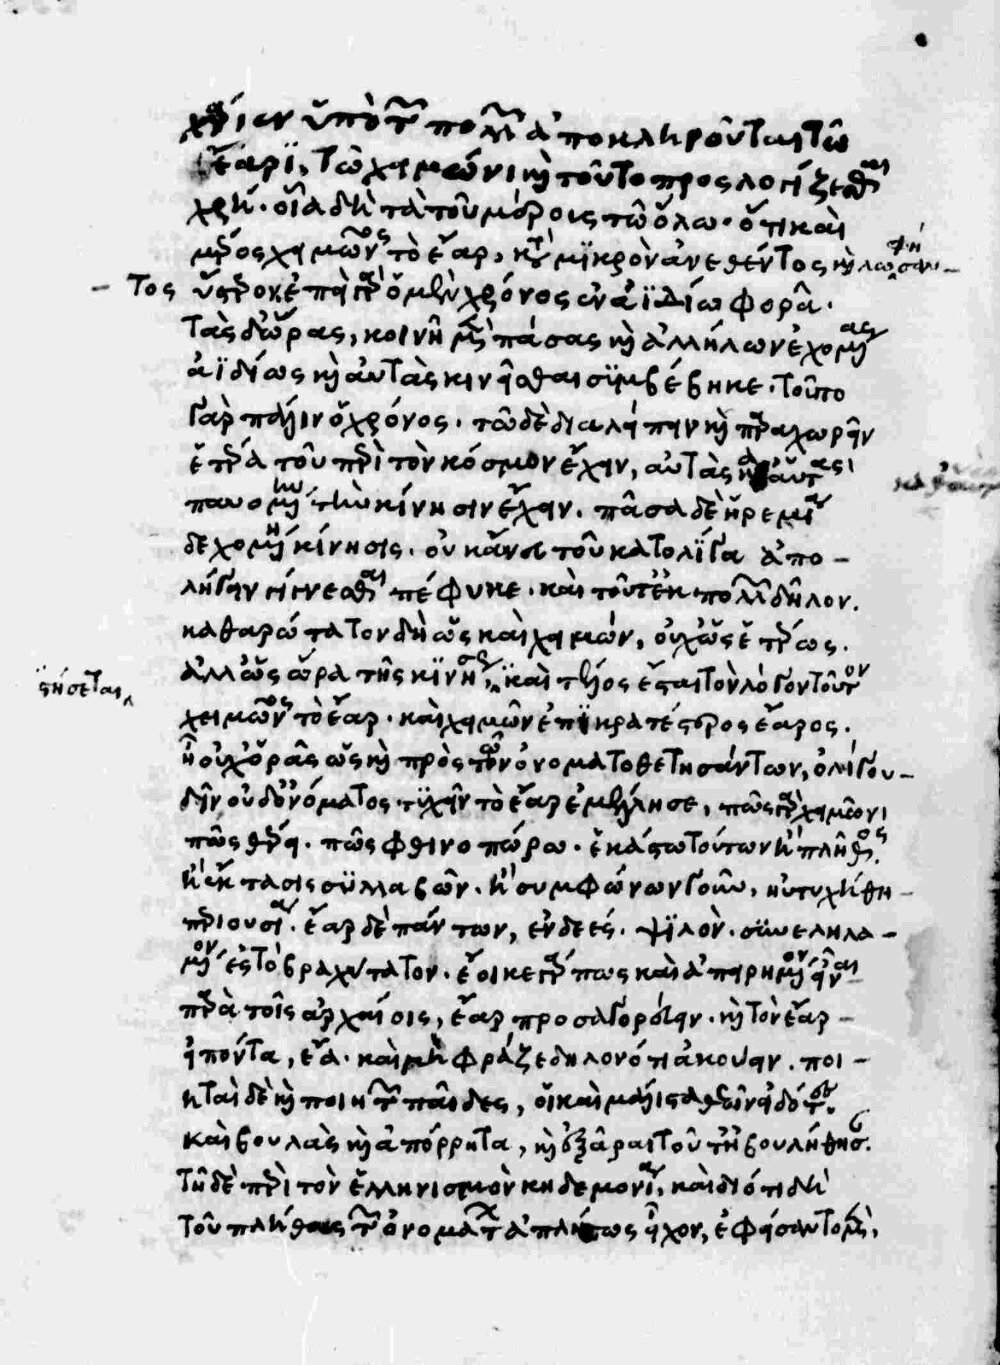 ὑπὸ τ πολλ ἀποκληροῦνται τῶ
ἔαρϊ, τῶ χειμῶνι καὶ τοῦτο προσλογίζεσθαι
χρή. οἷα δὴ τὰ τοῦ μέροις τῶ ὅλω. ὅτι καὶ
μέρος χειμῶνος τὸ ἔαρ, μϊκρὸν ἀνεθέντος καὶ
τος ὕστερον ἐπεὶ παρ χρόνος ἐν ἀϊδίω φορᾶ.
τὰς δ' ὥρας, κοινῆ μὲν πάσας καὶ ἀλλήλων ἐχομένας
ἀϊδίως καὶ αὐτὰς κινεῖσθαι σϋμβέβηκε. τοῦτο
γὰρ πάλιν ὁ χρόνος. τῶ δὲ διαλείπειν καὶ παραχωρεῖν
ἑτέρα τοῦ περὶ τὸν κόσμον ἔχειν, αὐτὰς
παυομένην τὴν κίνησιν ἔχειν. πᾶσα δὲ ἠρεμίαν
δεχομένη κίνησις. οὐκ ἄνευ τοῦ κατολϊγα ἀπο-
λήγειν γίνεσθαι πέφυκε. καὶ τοῦτ' ἐκ πολλ δῆλον.
καθαρώτατον δὴ ὡς καὶ χειμών, οὐχ ὡς ἑτέρως.
ἀλλ' ὡς ὥρα τῆς κϊνήσεως καὶ τέλος ἔσται τὸν λόγον τοῦτον
ϊστήσεται
χειμῶνος τὸ ἔαρ. καὶ χειμὼν ἐπϊκρατέστερος ἔαρος.
ἢ οὐχ ὁρᾶς ὡς καὶ πρὸς τῶν ὀνοματοθετησάντων, ὀλίγου
δεῖν οὐδ' ὀνόματος τϋχεῖν τὸ ἔαρ ἐμέλησε, πῶς γὰρ χειμῶνι
πῶς θέρει. πῶς φθινοπώρω. ἑκάστω τούτων καὶ πλῆθος
καὶ ἔκτασις σϋλλαβῶν. καὶ συμφώνων γοῦν, ηὐτυχήθη
περιουσία. ἔαρ δὲ πάντων, ἐνδεές. ψϊλὸν. σϋνεληλα-
μένον ἐς τὸ βραχύτατον. ἔοικε γάρ πως καὶ ἀπηρημένον εἶναι
παρὰ τοῖς ἀρχαίοις, ἔαρ προσαγορεύειν. καὶ τὸν ἔαρ
εἰπόντα, ἔα. καὶ μὴ φράζε δηλονότι ἀκούειν. ποι-
ηταὶ δὲ καὶ ποιητῶν παῖδες, οἳ καὶ μάλιστα θεῖον εἰδότες.
καὶ βουλὰς καὶ ἀπόρρητα, καὶ ἐξᾶραι τοῦτ' ἐβουλήθησαν.
τῆ δὲ περὶ τὸν ἑλληνισμὸν κηδεμονία, καὶ διότι δὴ
τοῦ πλήθους τῶν ὀνομάτων ἀπλήστως εἶχον, ἐφείσαντο μὲν,